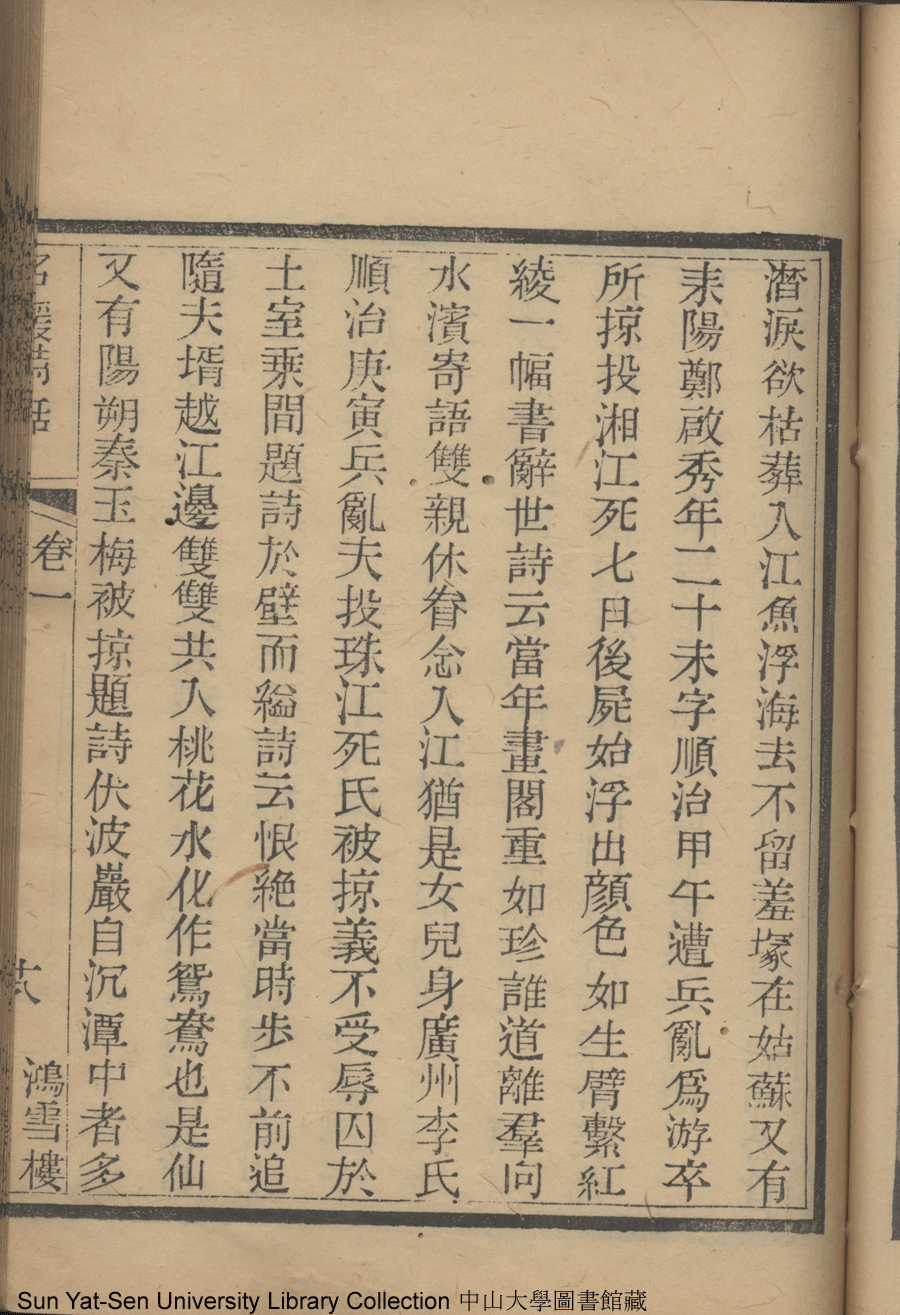 潸淚欲枯葬入江魚浮海去不留羞塚在姑蘇又有
耒陽鄭啟秀年二十未字順治甲午遭兵亂為游卒
所掠投湘江死七日後屍始浮出顏色如生臂繫紅
綾一幅書辭世詩云當年畫閣重如珍誰道離羣向
水濱寄語雙親休眷念入江猶是女兒身廣州李氏
順治庚寅兵亂夫投珠江死氏被掠義不受辱囚於
土室乗間題詩於壁而縊詩云恨絶當時步不前追
隨夫壻越江邊雙雙共入桃花水化作鴛鴦也是仙
又有陽朔秦玉梅被掠題詩伏波巖自沉潭中者多
名媛詩話 卷一 鴻雪樓
Sun Yat-Sen University Library Collection 中山大學圖書館藏